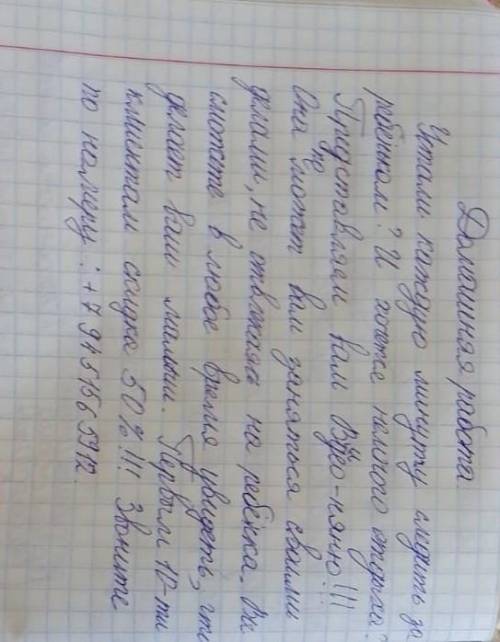 Домашняя работа
Устали каждую минуту следить за
ребёнком? И хотите немного отдыха?
Представляем вам Видео-няню!!!
Она поможет вам заняться своими
делами, не отвлекаясь на ребёнка. Вы
сможете в любое время увидеть, что
делает ваш малыш. Первым 10-ти
клиентам скидка 50%!!! Звоните
по номеру: +7945156